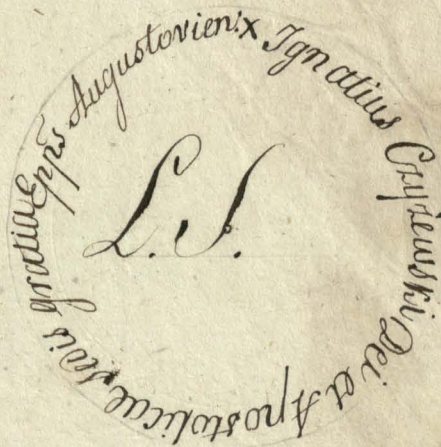 Ignatius Czyżewski Dei et Apostolicae sedis gratia Epp̃s Augustovien: x
L. S.